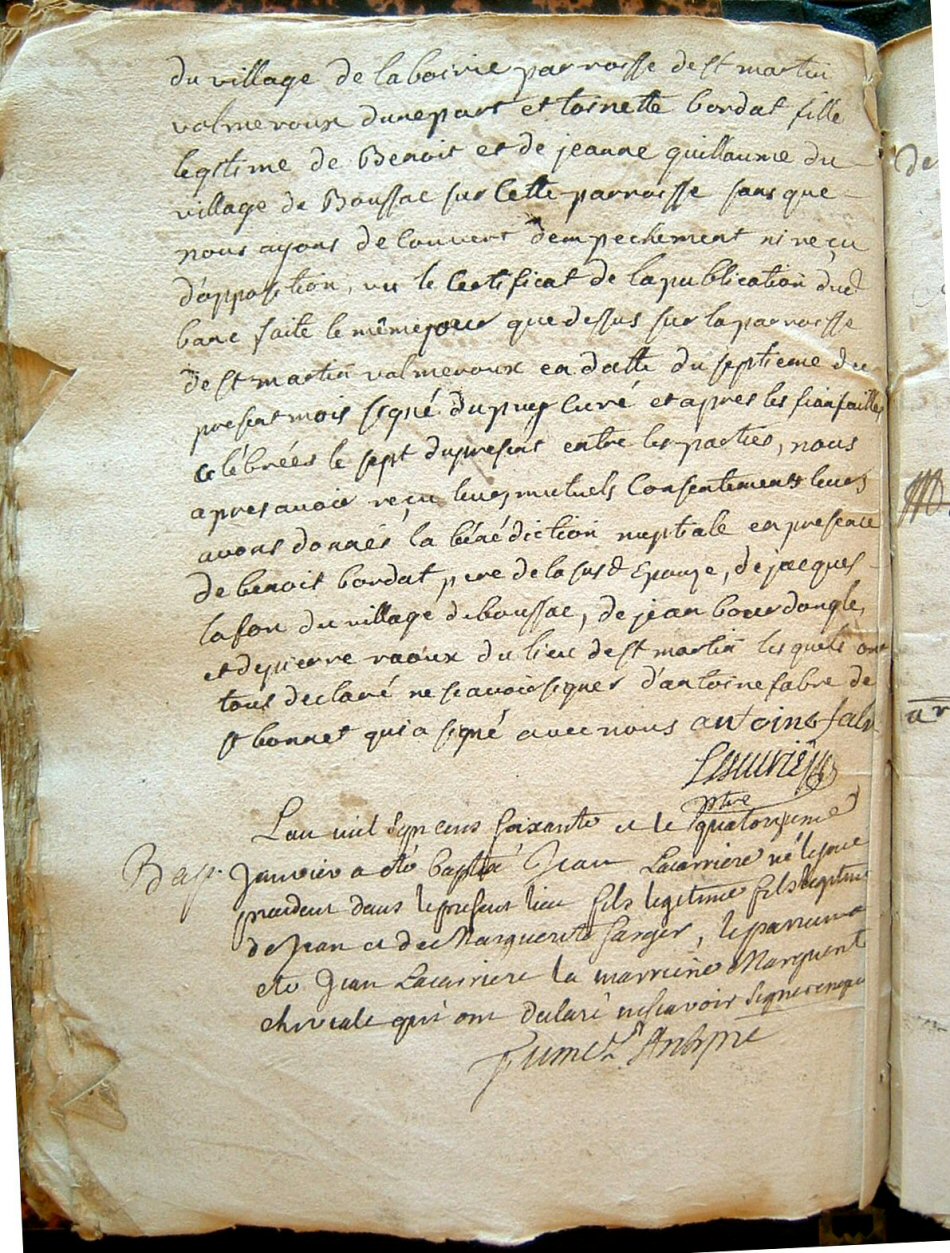 du village de laboirie parroisse de st martin
valmeroux dunepart et toinette bordat fille
legitime de Benoit et de jeanne guillaume du
village de Boussac sur cette parroisse sans que
nous ayons decouvert dempechement ni reçu
d'opposition, vu le certificat de la publication dud
banc faite le mêmejour que dessus sur la parroisse
de st martin valmeroux en datte du septieme du
present mois signé dupuy curé et apres les fiansailles
célébrées le sept dupresent entre les parties, nous
apres avoir reçu leurs mutuels consentements leurs
avons donnés la bénédiction nuptiale en presence
de benoit bordat pere de la susd Epouze, de jacques
lafon du village de boussac, de jean bourdongle,
et depierre raoux du lieu de st martin lesquels ont
tous declaré ne scavoir signer d'antoine fabre de
st bonnet qui a signé avec nous antoine fabr
ptre
Lan mil sept cens soixante et le quatorzieme
Bap. Janvier a été baptisé Jean Lacarriere né le jour
precedent dans le present lieu fils legitime fils legitime
de Jean et de Marguerite Sarger, le parrein a
ete Jean Lacarriere la marreine Marguerite
chiviale qui ont declaré nescavoir signer enquis